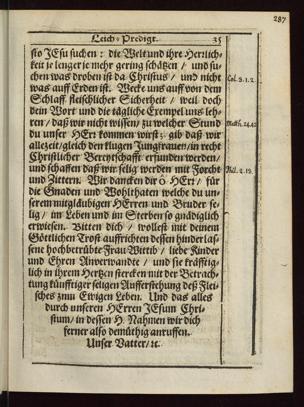 287
Leich-Predigt. 35
sto JEsu suchen: die Welt und ihre Herrlich-
keit je lenger je mehr gering schätzen / und su-
chen was droben ist da Christus / und nicht
was auff Erden ist. Wecke uns auff von dem
Schlaff fleischlicher Sicherheit / weil doch
dein Wort und die tägliche Exempel uns leh-
ren / daß wir nicht wissen / zu welcher Stund
du unser HErr kommen wirst: gib daß wir
allezeit / gleich den klugen Jungfrauen / in recht
Christlicher Bereytschafft erfunden werden /
und schaffen daß wir selig werden mit Forcht
und Zittern. Wir dancken dir ô HErr / für
die Gnaden und Wohlthaten welche du un-
serem mitgläubigen HErren und Bruder se-
lig / im Leben und im Sterben so gnädiglich
erwiesen. Bitten dich / wollest mit deinem
Göttlichen Trost auffrichten dessen hinder las-
sene hochbetrübte Frau Wittib / liebe Kinder
und Ehren Anverwandte / und sie kräfftig-
lich in ihrem Hertzen stercken mit der Betrach-
tung künfftiger seligen Aufferstehung deß Flei-
sches zum Ewigen Leben. Und das alles
durch unseren HErren JEsum Chri-
stum / in dessen H. Nahmen wir dich
ferner also demüthig anruffen.
Unser Vatter / ec.
Col. 3. 1. 2.
Matth. 24. 42
Phil. 2. 12.